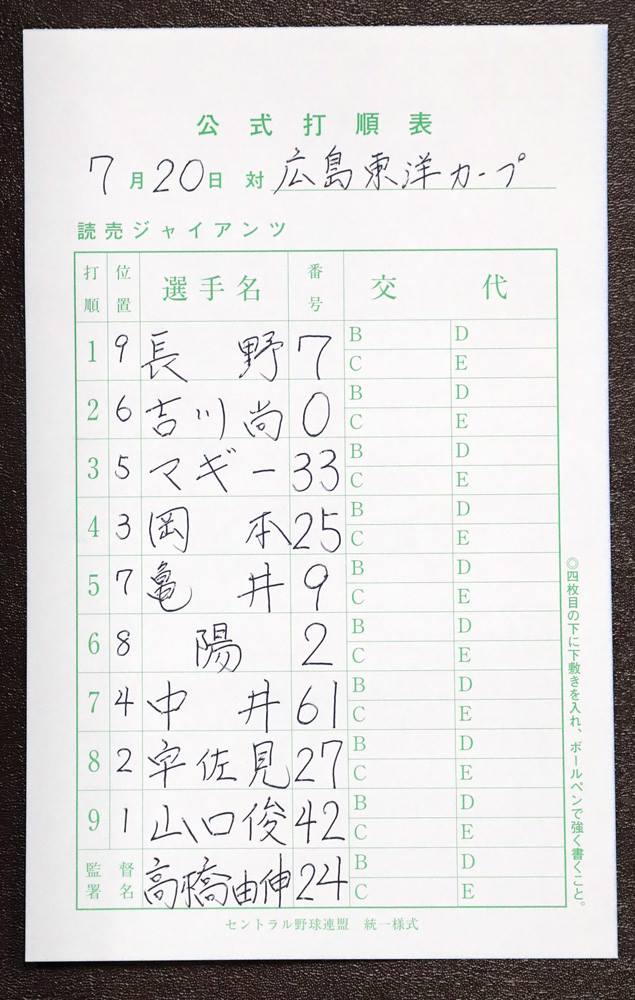 公式打順表
7月20日 対 広島東洋カープ
読売ジャイアンツ
打順 位置 選手名 番号 交代
1 9 長野 7 B D C E
2 6 吉川尚 0 B D C E
3 5 マギー 33 B D C E
4 3 岡本 25 B D C E
5 7 亀井 9 B D C E
6 8 陽 2 B D C E
7 4 中井 61 B D C E
8 2 宇佐見 27 B D C E
9 1 山口俊 42 B D C E
監督署名 高橋由伸 24 B D C E
◎四枚目の下に下敷きを入れ、ボールペンで強く書くこと。
セントラル野球連盟 統一様式